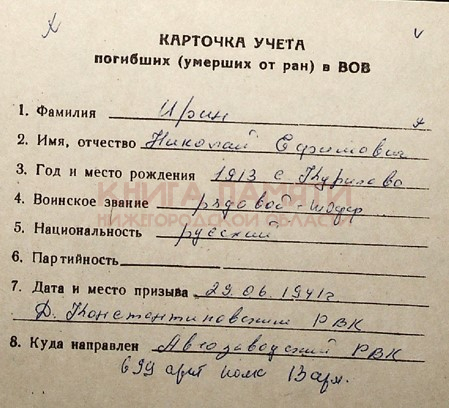 КАРТОЧКА УЧЕТА
погибших (умерших от ран) в ВОВ
1. Фамилия Ирин
2. Имя, отчество Николай Ефимович
3. Год и место рождения 1913 с. Курилово
КНИГА ПАМЯТИ
4. Воинское звание рядовой-шофер
НИЖЕГОРОДСКОЙ ОБЛАСТИ
5. Национальность русский
6. Партийность
7. Дата и место призыва 29.06.1941г
Д. Константиновским РВК
8. Куда направлен Автозаводский РВК
699 арт полк 13 арм.